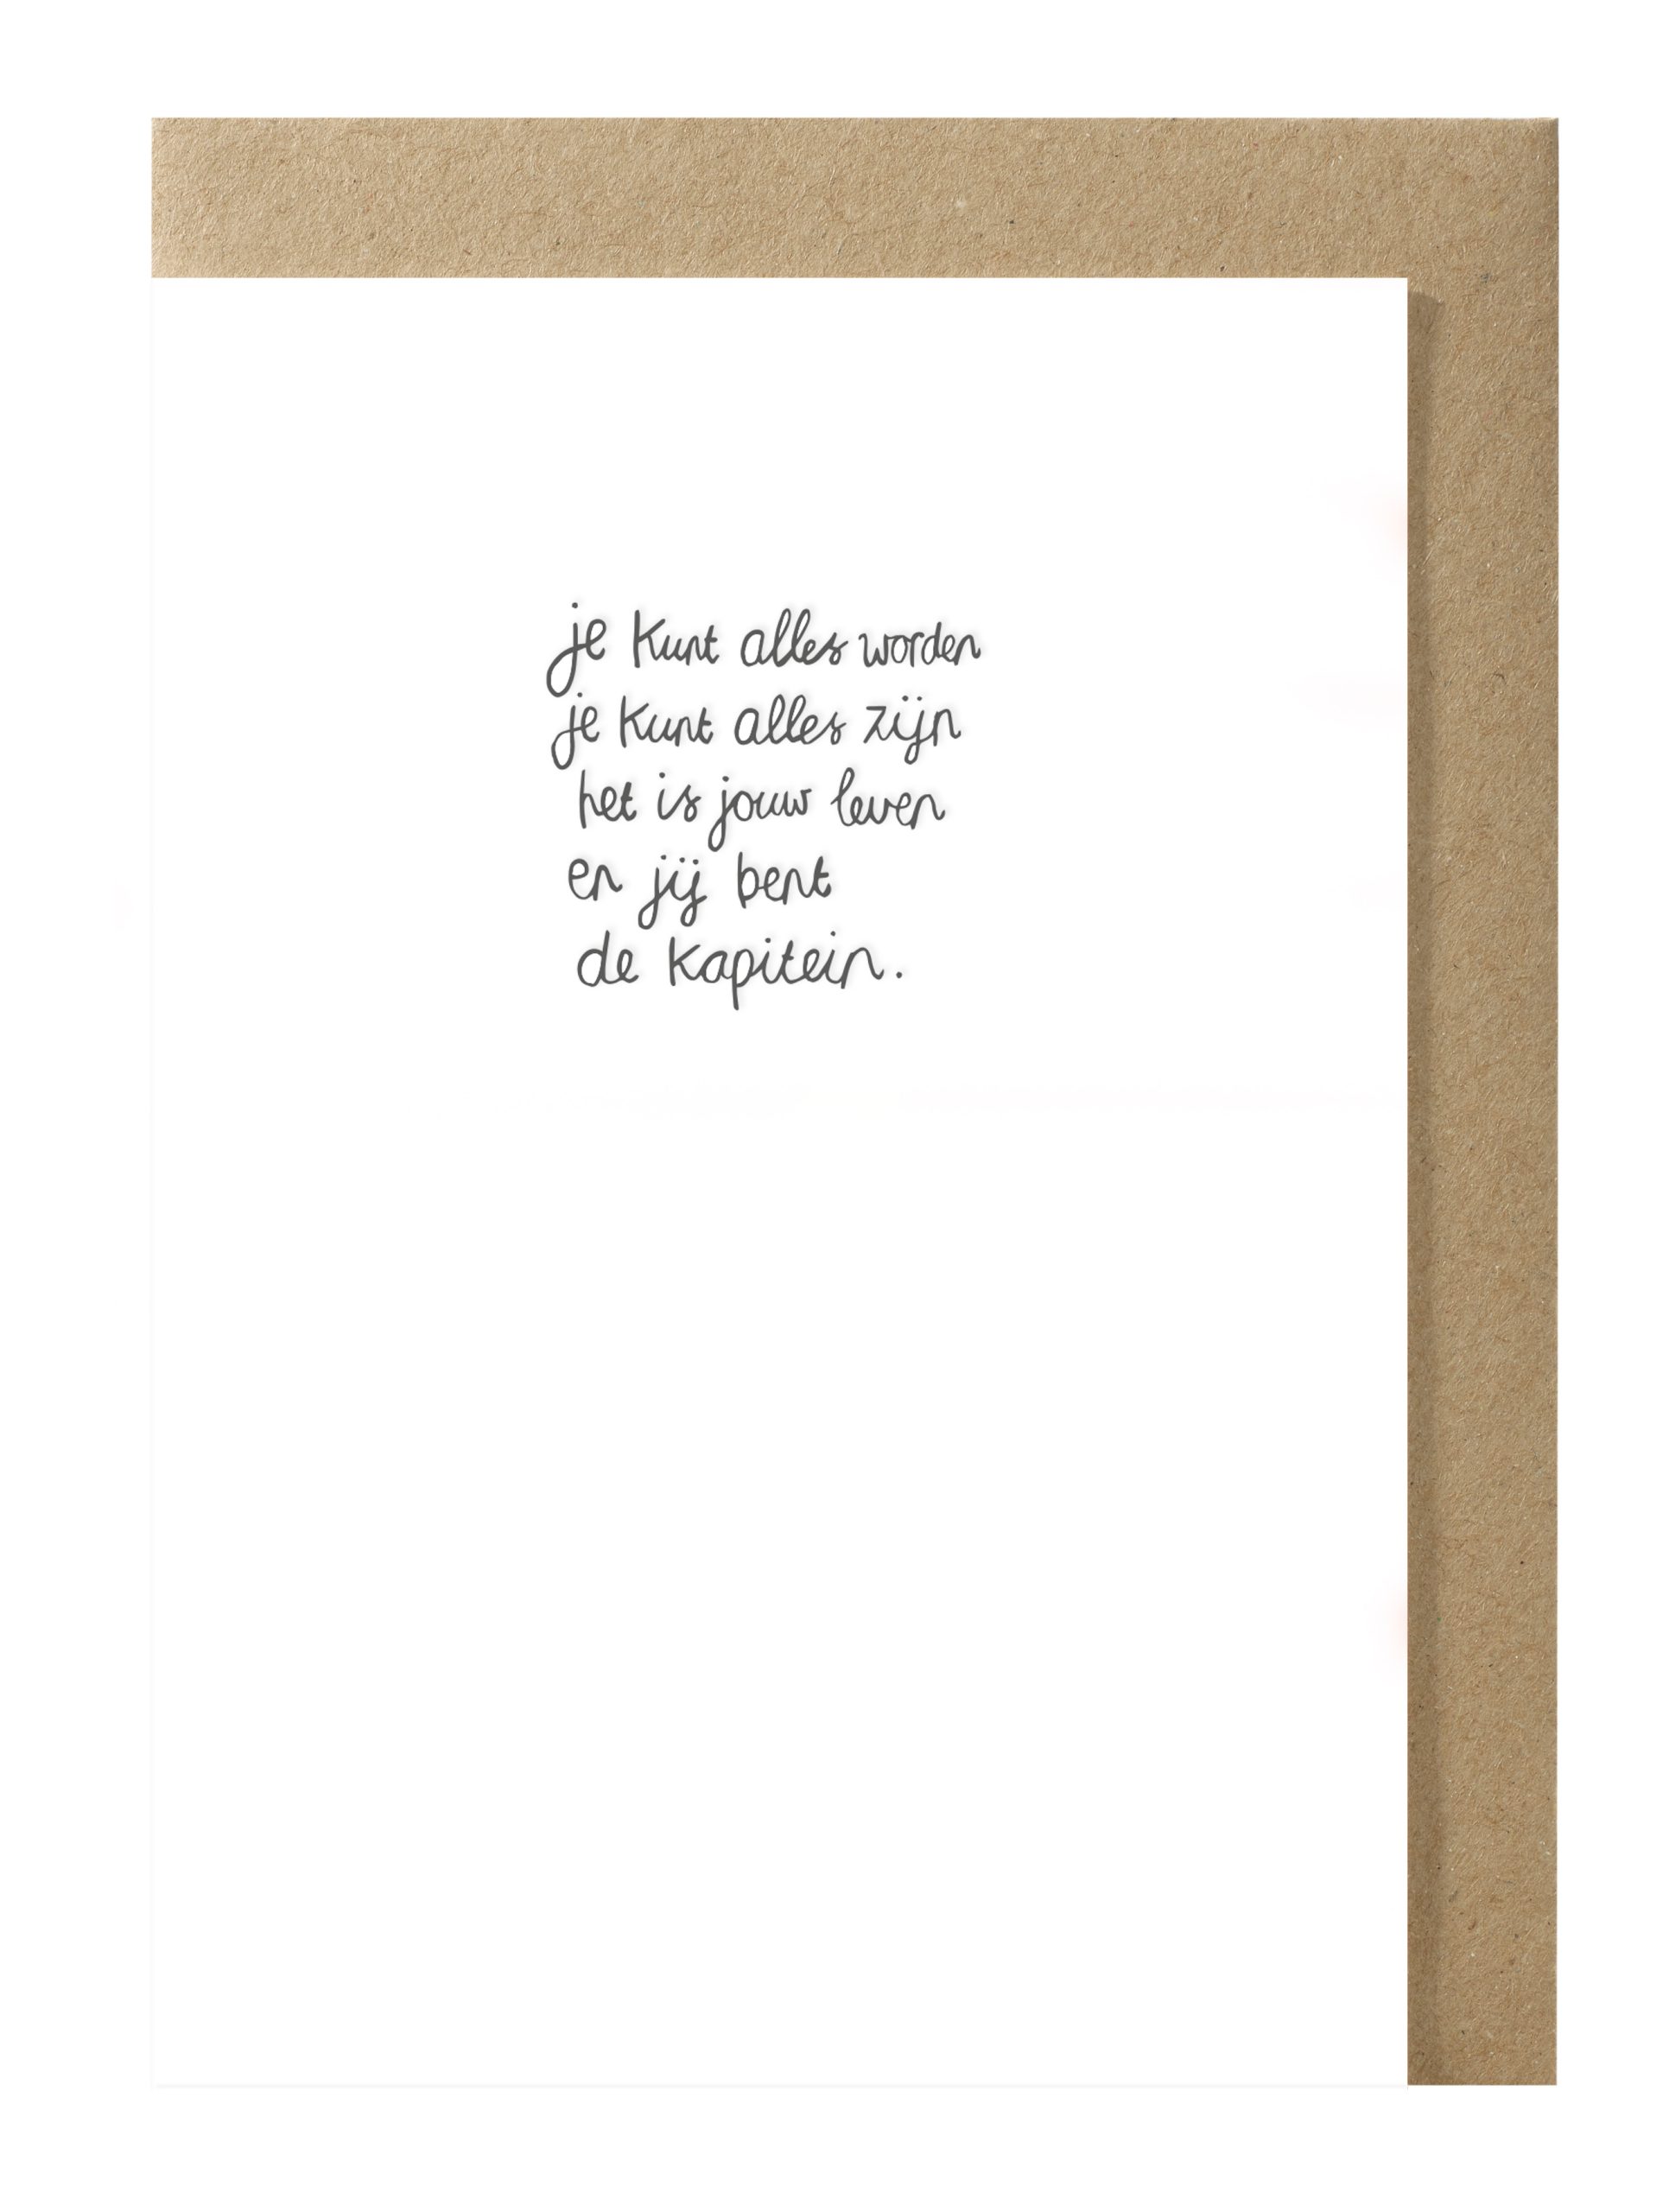 je kunt alles worden
je kunt alles zijn
het is jouw leven
en jij bent
de kapitein.